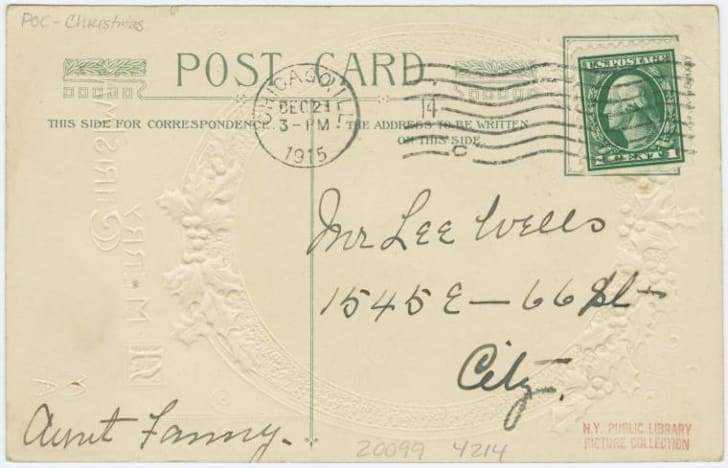 POC - Christmas
POST CARD
THIS SIDE FOR CORRESPONDENCE.
THE ADDRESS TO BE WRITTEN
ON THIS SIDE.
CHICAGO, ILL.
DEC 21
3-PM
1915
14
C
U.S. POSTAGE
1 CENT 1
Mr Lee Wells
1545 E-66 St
City.
Aunt Fanny.
20099 4214
N.Y. PUBLIC LIBRARY
PICTURE COLLECTION